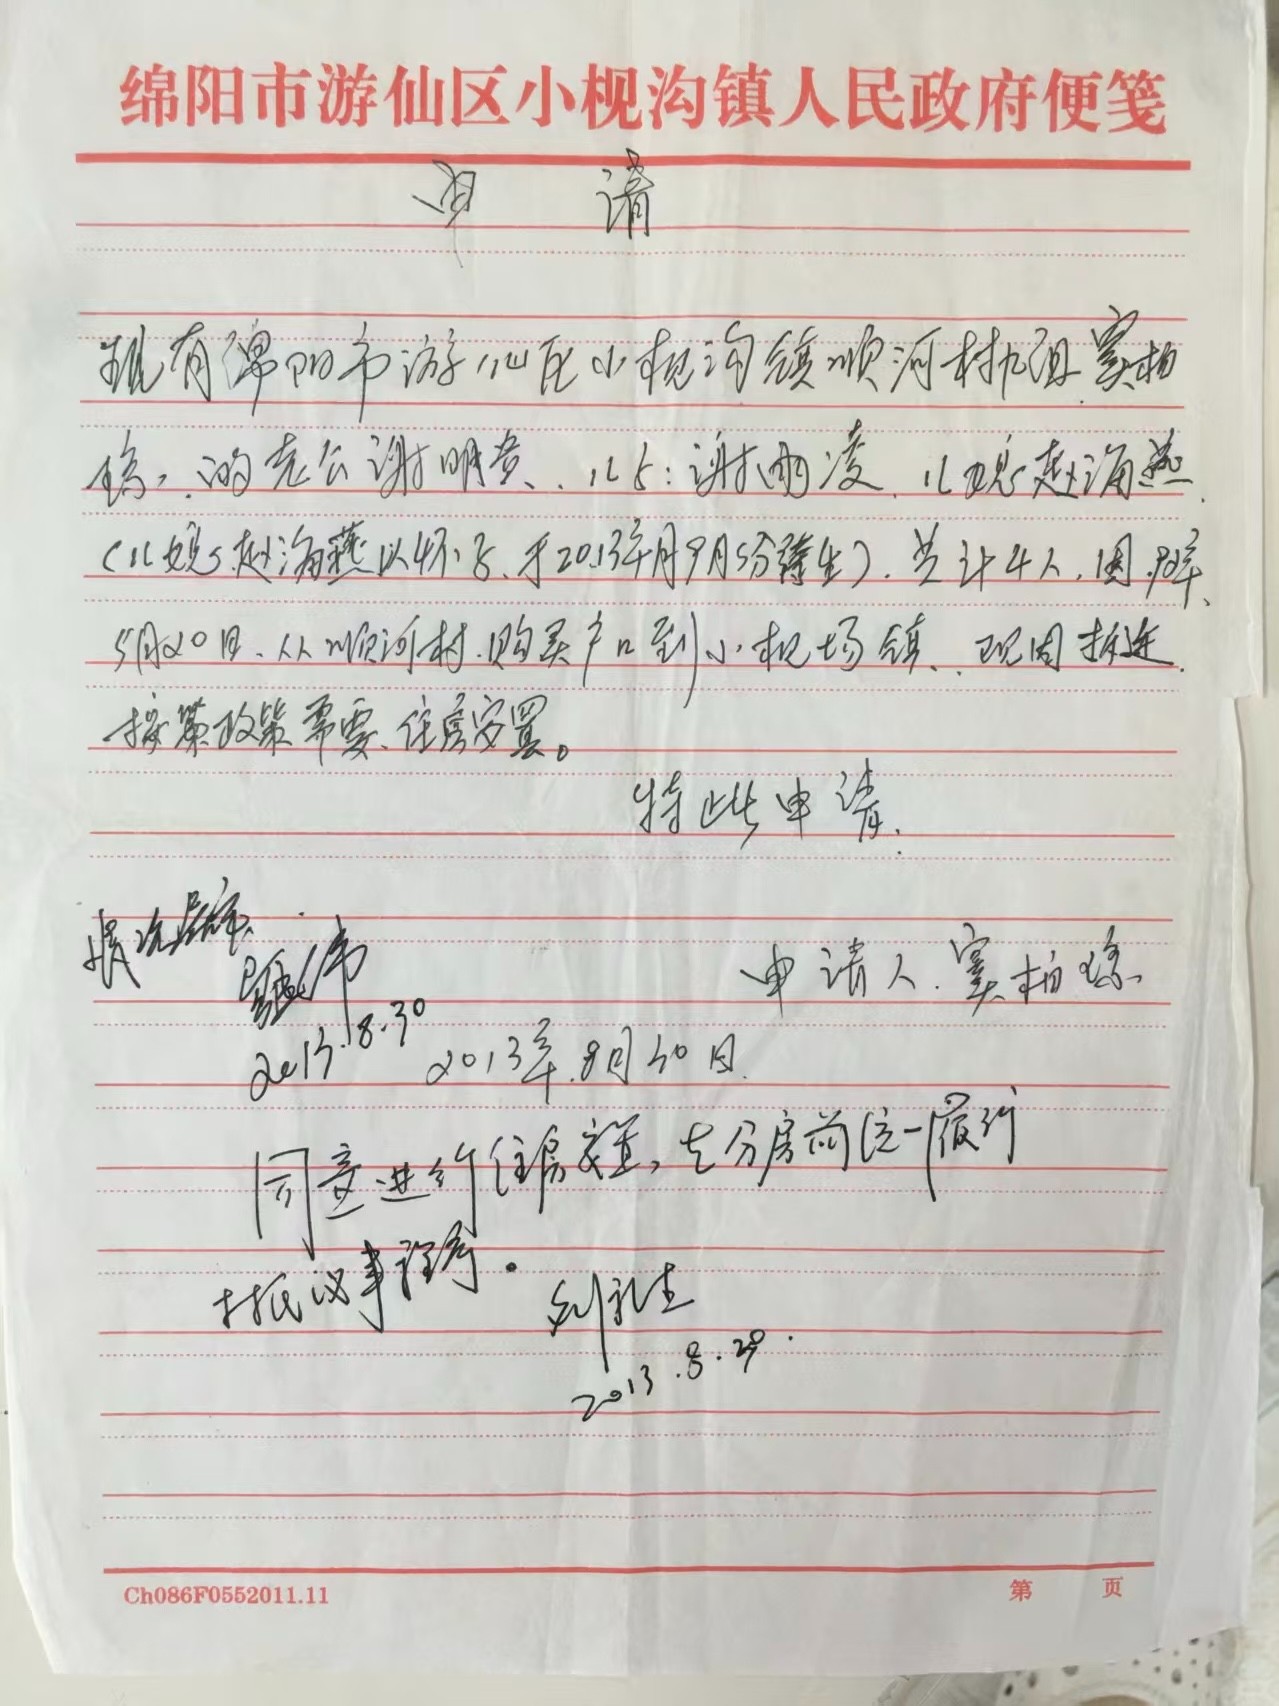 绵阳市游仙区小枧沟镇人民政府便笺
申 请
现有绵阳市游仙区小枧沟镇顺河村九组.窦柏
琼,的老公谢明贵、儿子:谢雨凌、儿媳赵海燕
(儿媳赵海燕以怀子、于2013年月9月5分诞生).共计4人,因
5月20日、从顺河村.购买户口到小枧场镇、现因拆迁
按策政策需要、住房安置。
特此申请.
情况属实
2013.8.30
申请人.窦柏琼
2013年.8月30日.
同意进行住房安置,在分房前统一履行
村民议事程序。
2013.8.29.
Ch086F0552011.11
第 页